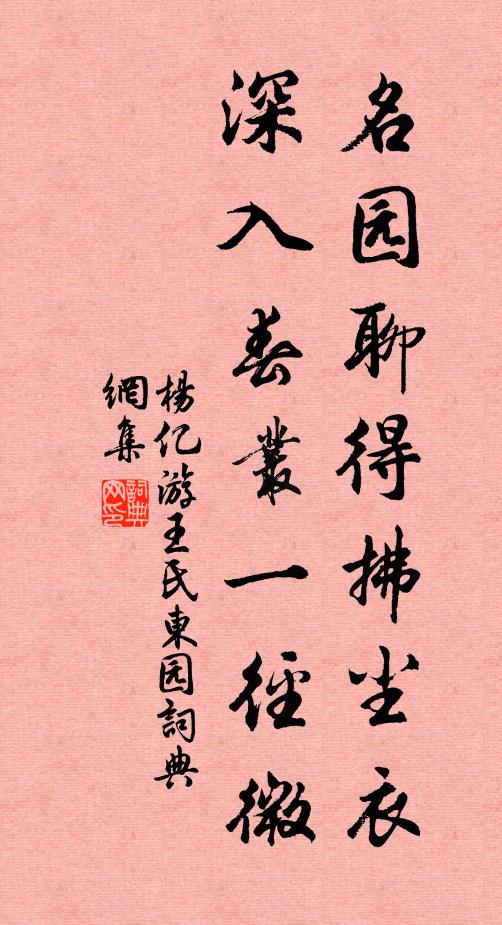 名园聊得拂尘衣
深入春叢一径微
楊亿游王氏東园詞典
網集
詞典網印